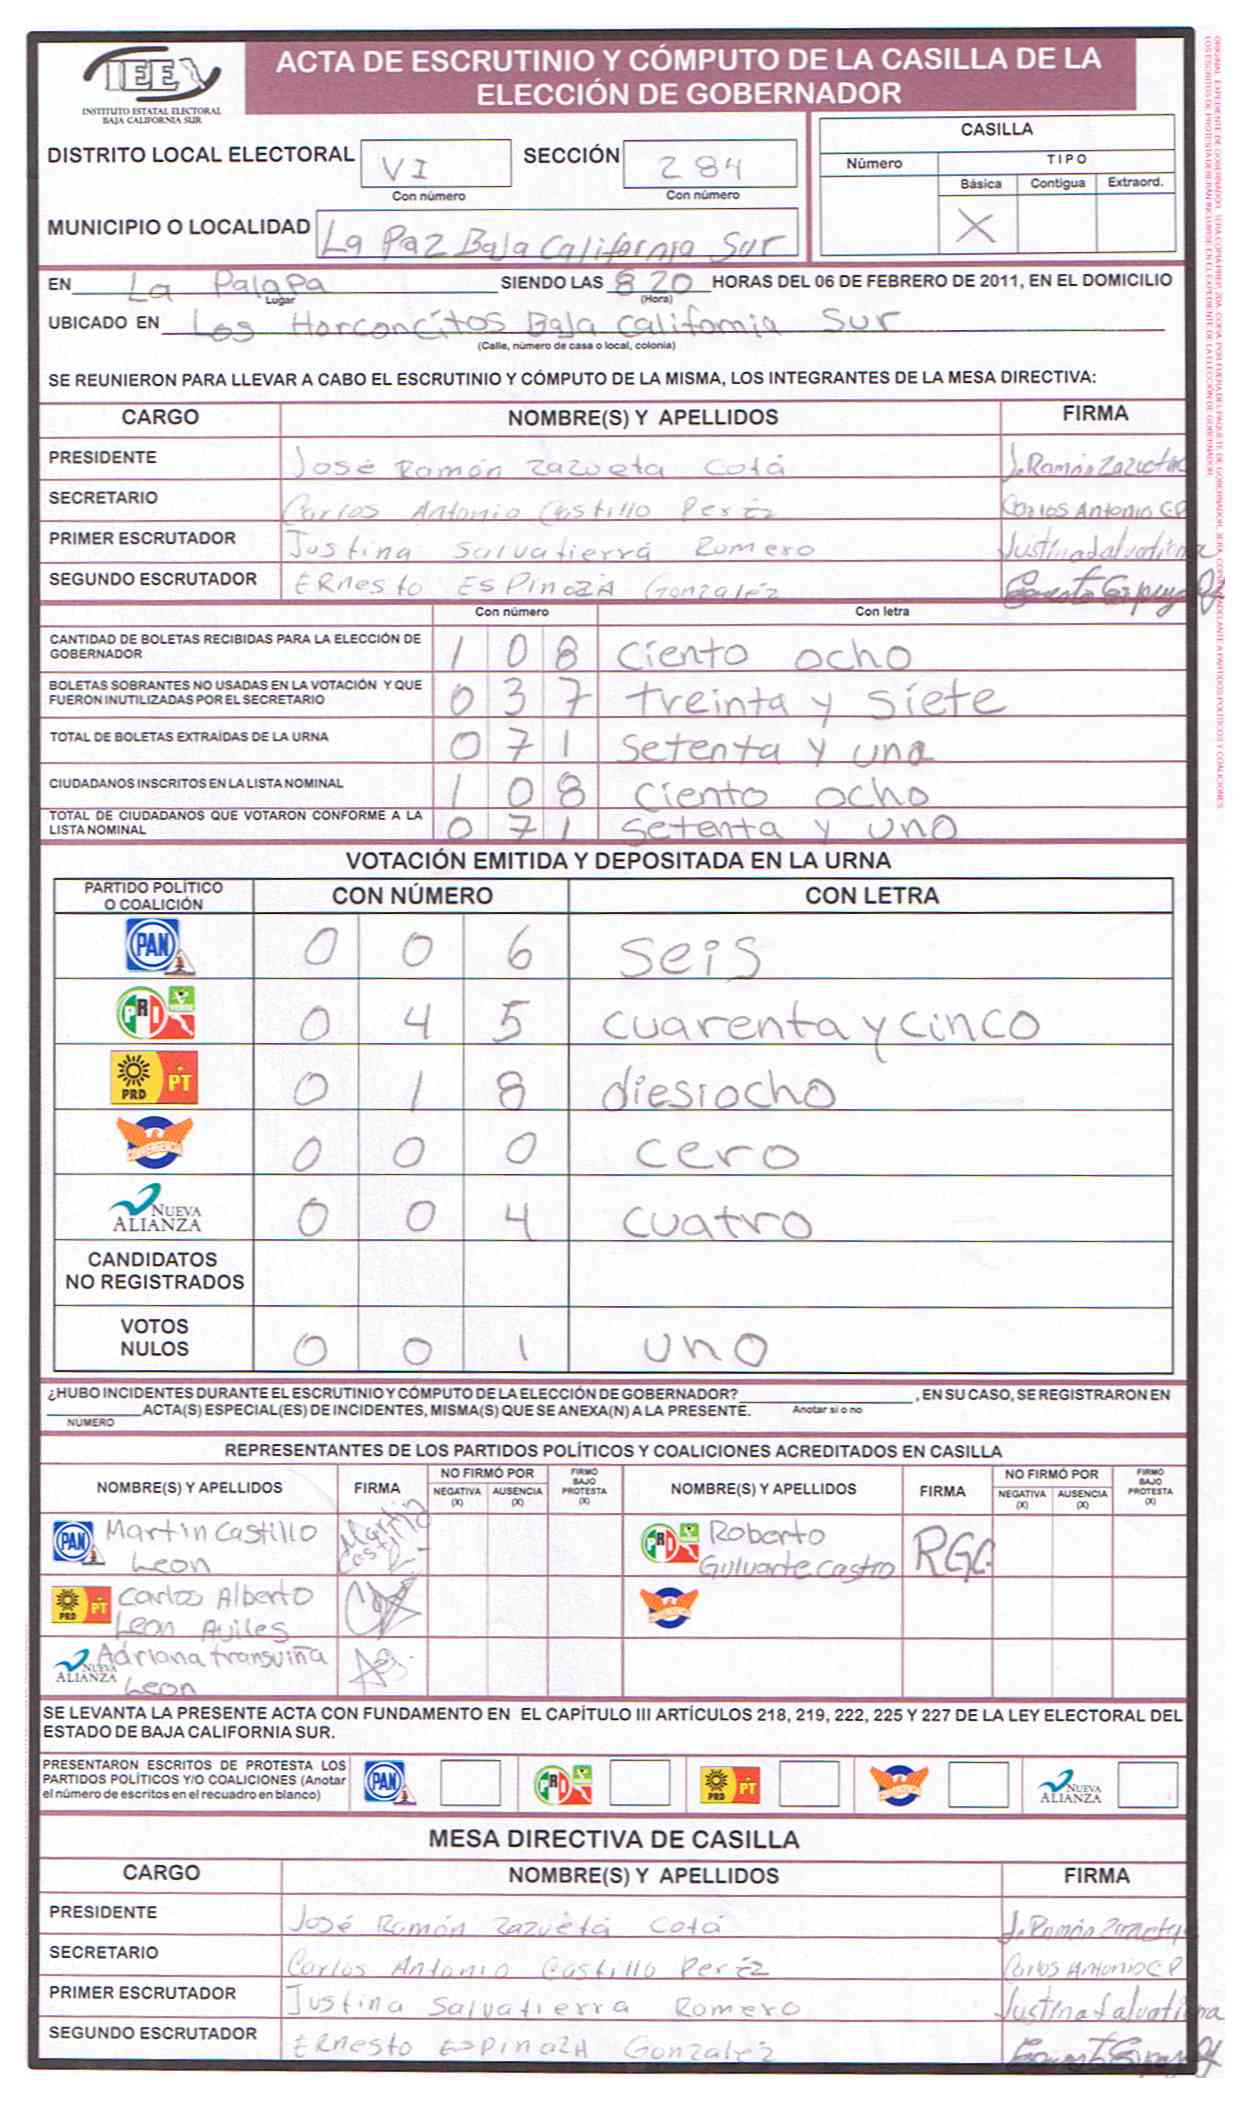 IEE
INSTITUTO ESTATAL ELECTORAL
BAJA CALIFORNIA SUR
ACTA DE ESCRUTINIO Y CÓMPUTO DE LA CASILLA DE LA
ELECCIÓN DE GOBERNADOR
DISTRITO LOCAL ELECTORAL VI SECCIÓN 284
Con número Con número
MUNICIPIO O LOCALIDAD La Paz Baja California Sur
CASILLA
Número TIPO
Básica Contigua Extraord.
X
EN La Palapa SIENDO LAS 8 20 HORAS DEL 06 DE FEBRERO DE 2011, EN EL DOMICILIO
Lugar (Hora)
UBICADO EN Los Horconcitos Baja California Sur
(Calle, número de casa o local, colonia)
SE REUNIERON PARA LLEVAR A CABO EL ESCRUTINIO Y CÓMPUTO DE LA MISMA, LOS INTEGRANTES DE LA MESA DIRECTIVA:
CARGO NOMBRE(S) Y APELLIDOS FIRMA
PRESIDENTE José Ramón Zazueta Cotá J. Ramón Zazueta
SECRETARIO Carlos Antonio Castillo Peréz Carlos Antonio C P
PRIMER ESCRUTADOR Justina Salvatierra Romero Justina Salvatierra
SEGUNDO ESCRUTADOR ERnesto ESPinozA Gonzaléz
Con número Con letra
CANTIDAD DE BOLETAS RECIBIDAS PARA LA ELECCIÓN DE
GOBERNADOR 1 0 8 ciento ocho
BOLETAS SOBRANTES NO USADAS EN LA VOTACIÓN Y QUE
FUERON INUTILIZADAS POR EL SECRETARIO 0 3 7 treinta y siete
TOTAL DE BOLETAS EXTRAÍDAS DE LA URNA 0 7 1 setenta y una
CIUDADANOS INSCRITOS EN LA LISTA NOMINAL 1 0 8 ciento ocho
TOTAL DE CIUDADANOS QUE VOTARON CONFORME A LA
LISTA NOMINAL 0 7 1 setenta y uno
VOTACIÓN EMITIDA Y DEPOSITADA EN LA URNA
PARTIDO POLÍTICO
O COALICIÓN CON NÚMERO CON LETRA
PAN 0 0 6 seis
PRI VERDE 0 4 5 cuarenta y cinco
PRD PT 0 1 8 diesiocho
CONVERGENCIA 0 0 0 cero
NUEVA
ALIANZA 0 0 4 cuatro
CANDIDATOS
NO REGISTRADOS
VOTOS
NULOS 0 0 1 uno
¿HUBO INCIDENTES DURANTE EL ESCRUTINIO Y CÓMPUTO DE LA ELECCIÓN DE GOBERNADOR? , EN SU CASO, SE REGISTRARON EN
ACTA(S) ESPECIAL(ES) DE INCIDENTES, MISMA(S) QUE SE ANEXA(N) A LA PRESENTE. Anotar si o no
NUMERO
REPRESENTANTES DE LOS PARTIDOS POLÍTICOS Y COALICIONES ACREDITADOS EN CASILLA
NOMBRE(S) Y APELLIDOS FIRMA NO FIRMÓ POR NEGATIVA (X) AUSENCIA (X) FIRMÓ BAJO PROTESTA (X) NOMBRE(S) Y APELLIDOS FIRMA NO FIRMÓ POR NEGATIVA (X) AUSENCIA (X) FIRMÓ BAJO PROTESTA (X)
PAN Martin Castillo
Leon Martin Castillo L
PRI Roberto
Guluarte Castro RGC
PRD PT Carlos Alberto
Leon Aviles
NUEVA ALIANZA Adriana transviña
Leon
SE LEVANTA LA PRESENTE ACTA CON FUNDAMENTO EN EL CAPÍTULO III ARTÍCULOS 218, 219, 222, 225 Y 227 DE LA LEY ELECTORAL DEL
ESTADO DE BAJA CALIFORNIA SUR.
PRESENTARON ESCRITOS DE PROTESTA LOS
PARTIDOS POLÍTICOS Y/O COALICIONES (Anotar
el número de escritos en el recuadro en blanco)
PAN PRI PRD PT NUEVA ALIANZA
MESA DIRECTIVA DE CASILLA
CARGO NOMBRE(S) Y APELLIDOS FIRMA
PRESIDENTE José Ramón Zazueta Cotá J. Ramón Zazueta
SECRETARIO Carlos Antonio Castillo Peréz Carlos Antonio C P
PRIMER ESCRUTADOR Justina Salvatierra Romero Justina Salvatierra
SEGUNDO ESCRUTADOR ERnesto ESPinozA Gonzaléz